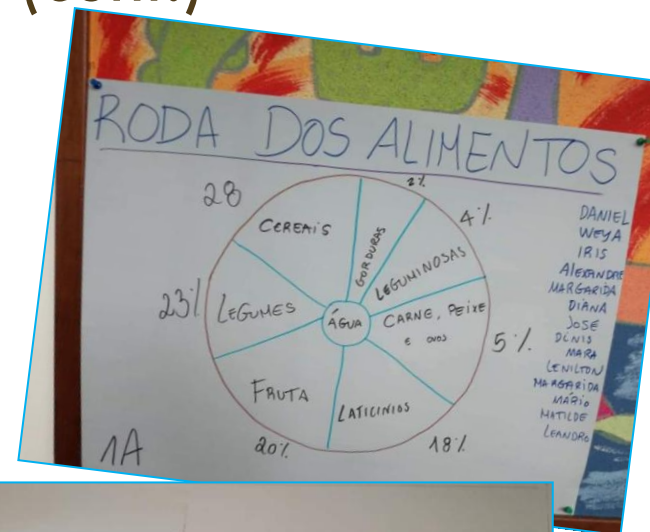 RODA DOS ALIMENTOS
28
2%
4%
CEREAIS
GORDURAS
LEGUMINOSAS
23%
LEGUMES
ÁGUA
CARNE, PEIXE
E OVOS
5%
FRUTA
LATICINIOS
20%
18%
1A
DANIEL
WEYA
IRIS
ALEXANDRE
MARGARIDA
DIANA
JOSÉ
DINIS
MARA
LENILTON
MARGARIDA
MÁRIO
MATILDE
LEANDRO